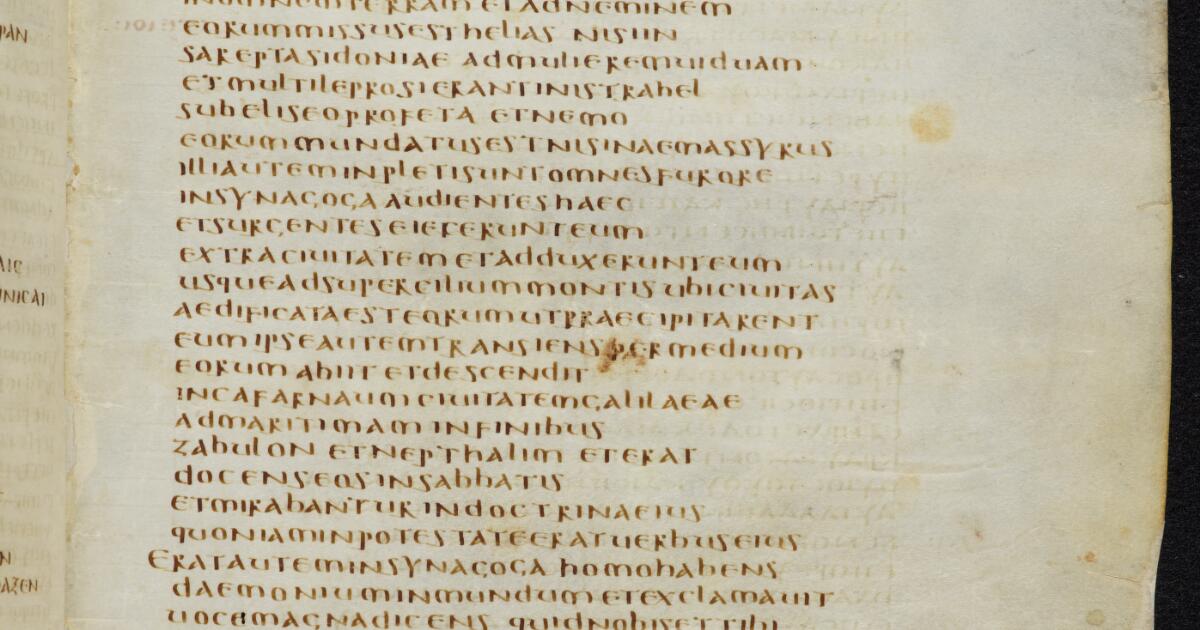 INOMNEMTERRAM ETADNEMINEM
EORUMMISSUSESTHELIAS NISIIN
SAREPTASIDONIAE ADMULIEREMUIDUAM
ETMULTILEPROSIERANTINISTRAHEL
SUBELISEOPROFETA ETNEMO
EORUMMUNDATUSESTNISINAEMASSYRUS
ILLIAUTEMINPLETISUNTOMNESFURORE
INSYNAGOGAAUDIENTESHAEC
ETSURGENTESEIECERUNTEUM
EXTRACIUITATEMETADDUXERUNTEUM
USQUEADSUPERCILIUMMONTISUBICIUITAS
AEDIFICATAESTEORUMUTPRAECIPITARENT
EUMIPSEAUTEMTRANSIENSPERMEDIUM
EORUMABIIT ETDESCENDIT
INCAFARNAUMCIUITATEMGALILAEAE
ADMARITIMAMINFINIBUS
ZABULON ETNEPTHALIM ETERAT
DOCENSEOSINSABBATIS
ETMIRABANTURINDOCTRINAEIUS
QUONIAMINPOTESTATEERATUERBUSEIUS
ERATAUTEMINSYNAGOGAHOMOHABENS
DAEMONIUMINMUNDUMETEXCLAMAUIT
UOCEMAGNADICENS QUIDNOBISETTIBI